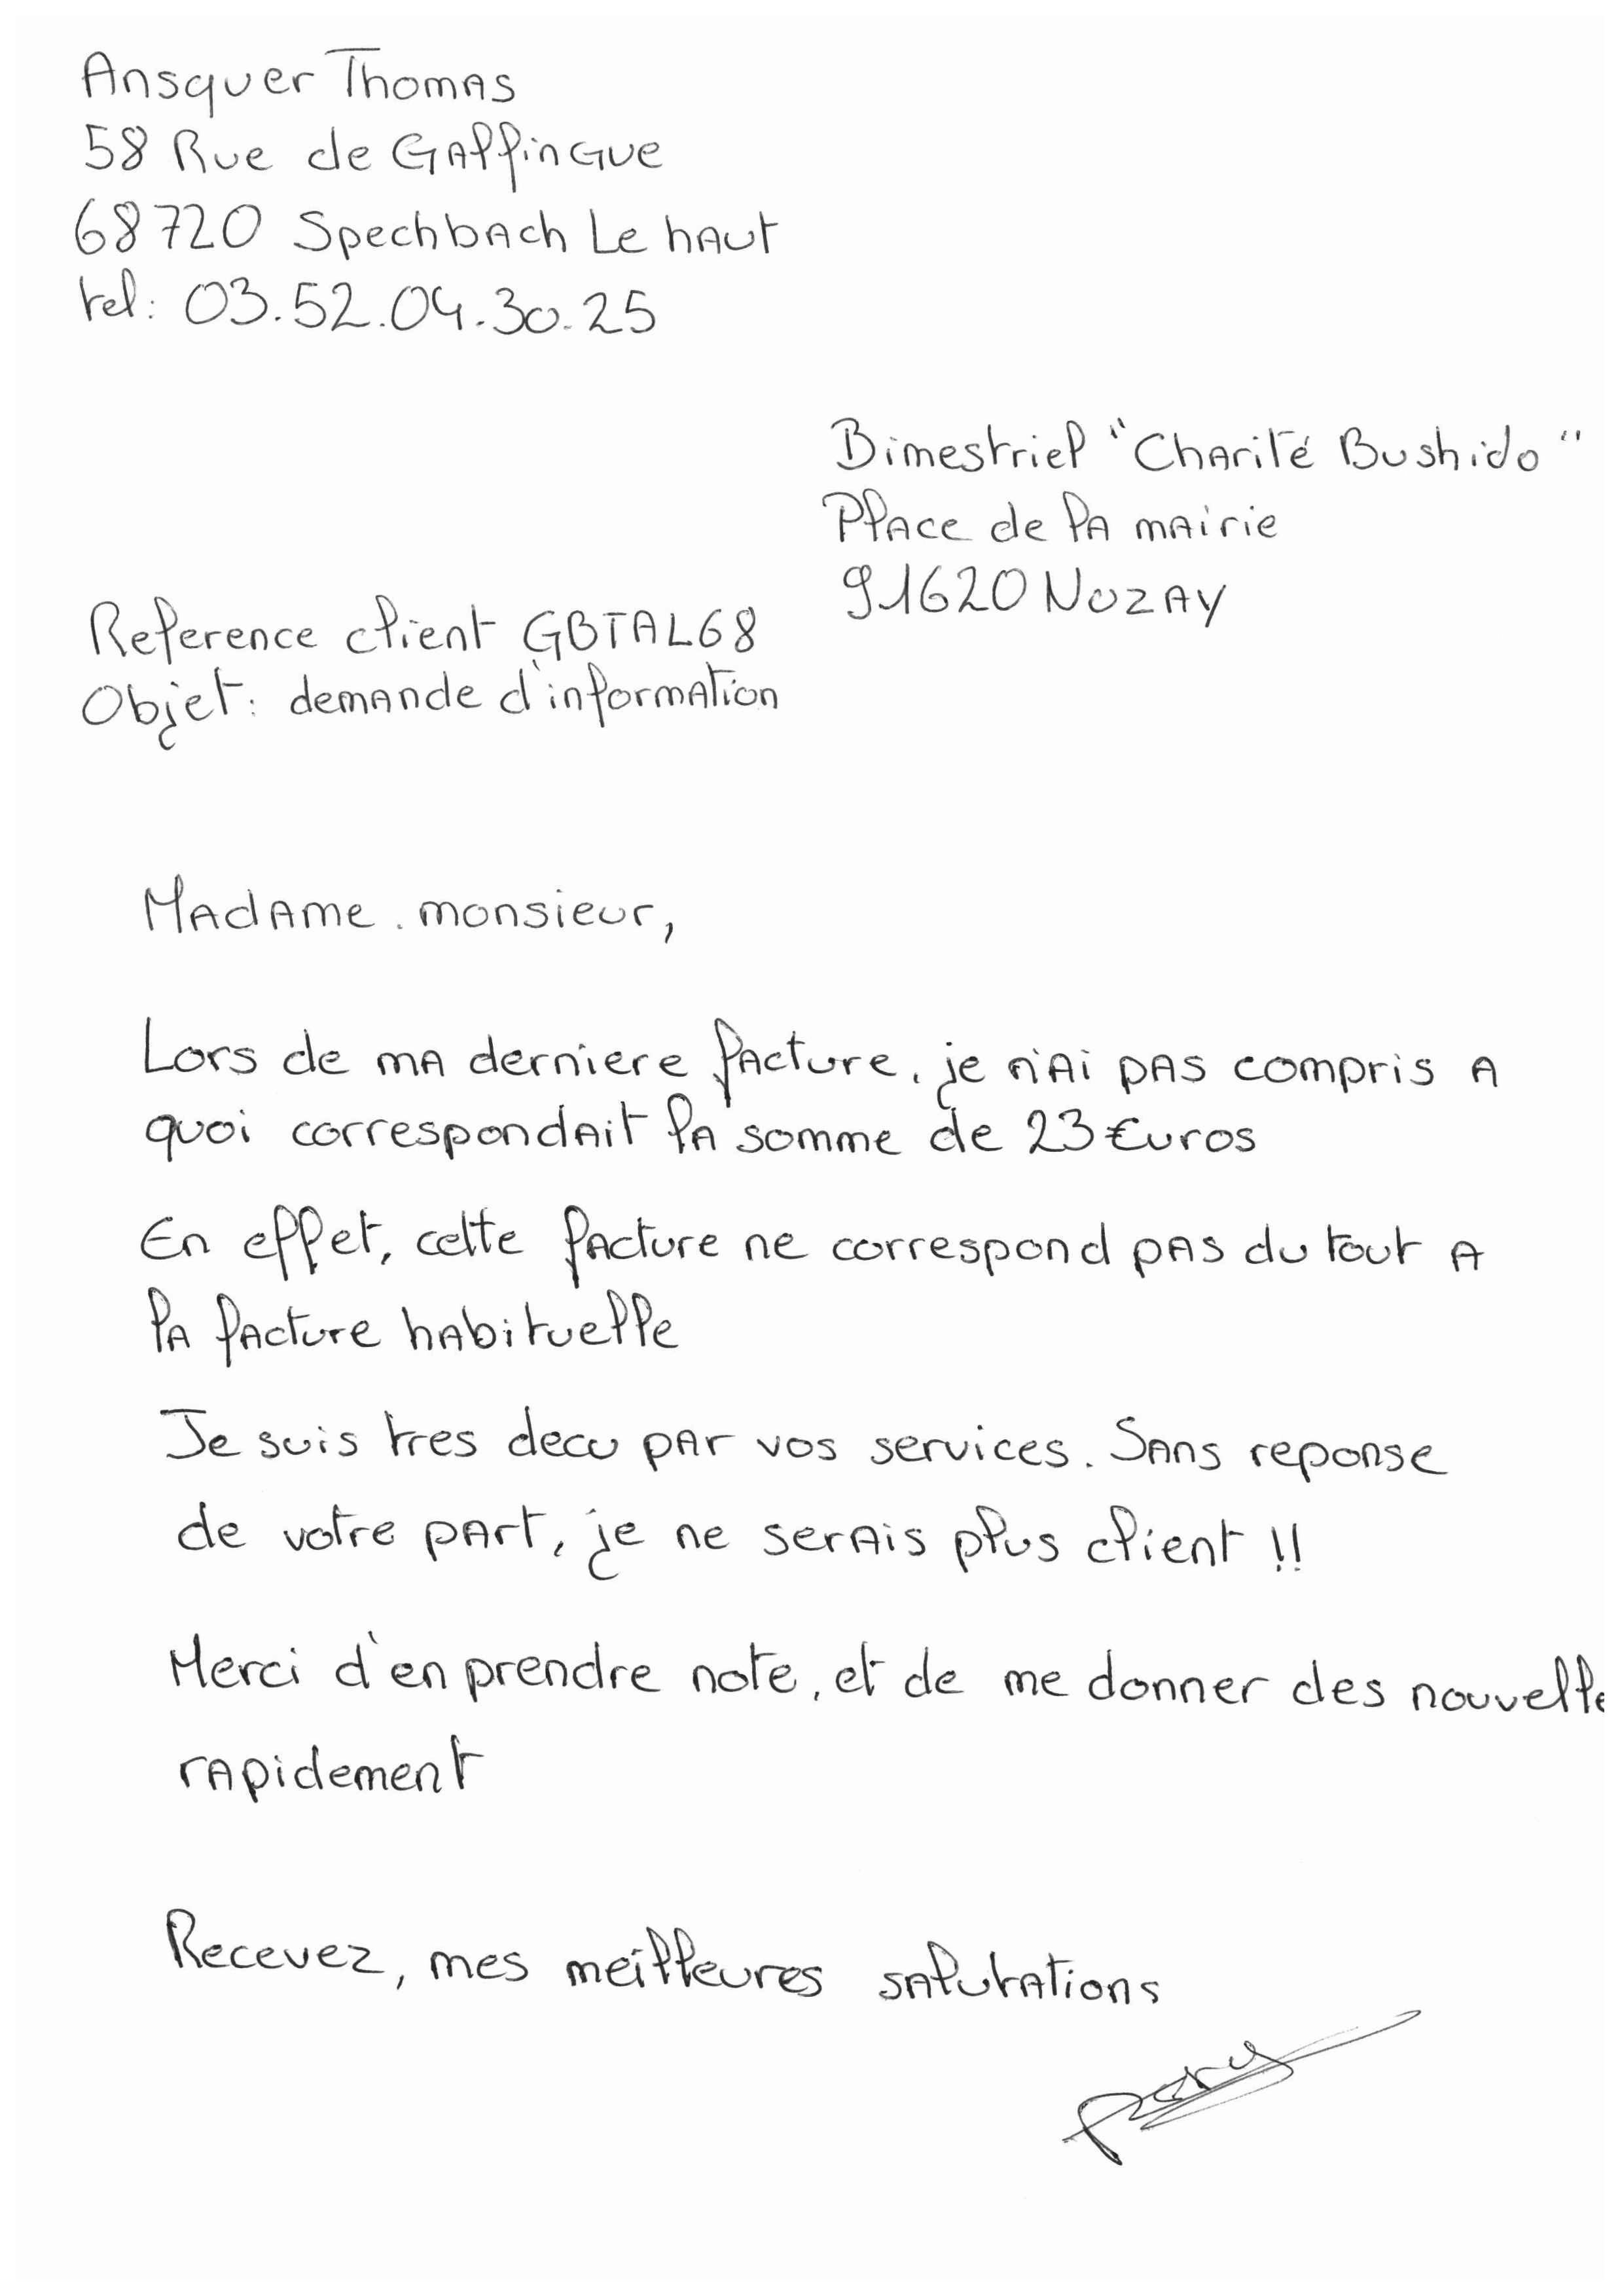 Ansquer Thomas
58 Rue de Galfingue
68720 Spechbach Le haut
tel: 03.52.04.30.25
Bimestriel "Charité Bushido"
Place de la mairie
91620 Nozay
Reference client GBTAL68
Objet: demande d'information
Madame. monsieur,
Lors de ma derniere facture, je n'ai pas compris a
quoi correspondait la somme de 23 €uros
En effet, cette facture ne correspond pas du tout a
la facture habituelle
Je suis tres decu par vos services. Sans reponse
de votre part, je ne serais plus client !!
Merci d'en prendre note, et de me donner des nouvelle
rapidement
Recevez, mes meilleures salutations